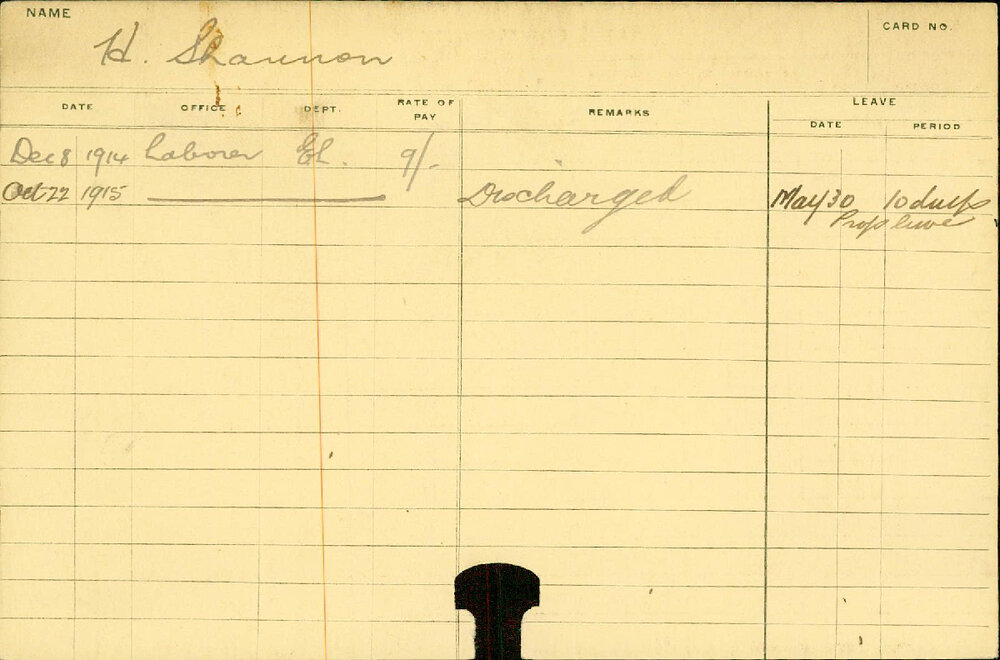 NAME
H. Shannon
CARD NO.
DATE OFFICE DEPT. RATE OF PAY REMARKS LEAVE
DATE PERIOD
Dec 8 1914 Laborer EL. 9/-
Oct 22 1915 Discharged May 30 10 days
Prop leave